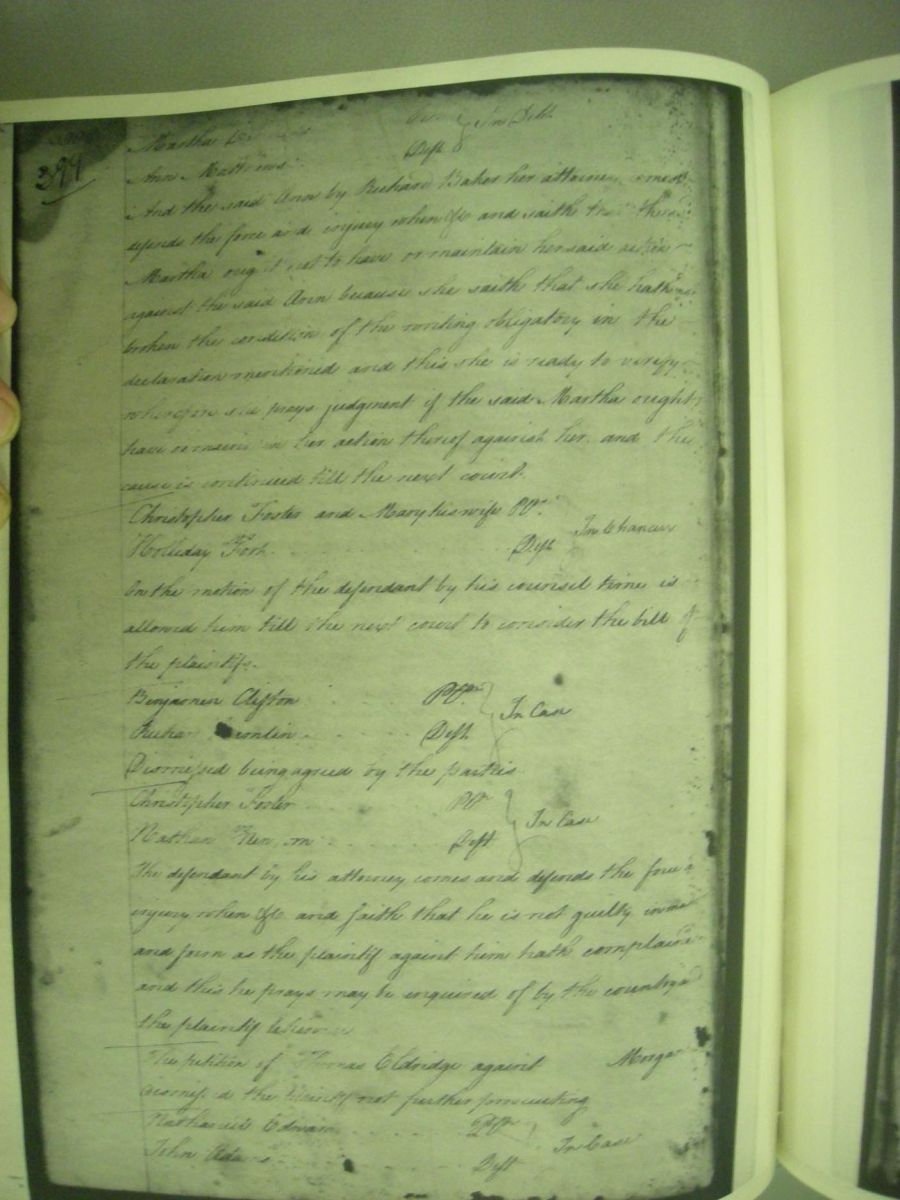 399
Martha In Debt
Ann Deft
And the said Ann by Richard Baker her attorney
defends the force and injury when &c and saith
Martha ought not to have or maintain her said action
against the said Ann because she saith that she hath
broken the condition of the writing obligatory in the
declaration mentioned and this she is ready to verify
wherefore she prays judgment if the said Martha ought
have or her action thereof against her. and the
cause is continued till the next court.
Christopher Foster and Mary his wife Pltr. In Chancery
Holliday Fort Deft
On the motion of the defendant by his counsel time is
allowed him till the next court to consider the bill of
the plaintifs.
Benjamin Clifton Pltr In Case
Deft
Dismissed being agreed by the parties
Christopher Foster Pltr In Case
Nathan Deft
The defendant by his attorney comes and defends the force &
injury when &c. and saith that he is not guilty in
and form as the plaintif against him hath
and this he prays may be inquired of by the country
the plaintif likewise
The petition of Thomas Eldridge against
the plaintif not further prosecuting
Pltr In Case
John Deft